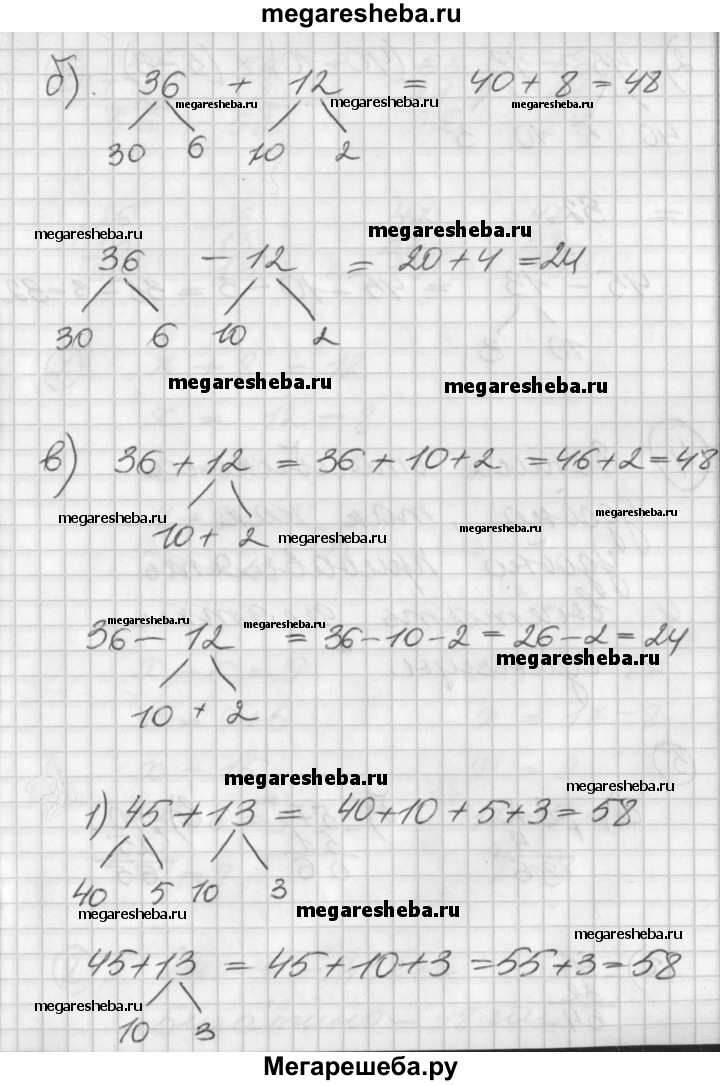 megaresheba.ru
б). 36 + 12 = 40 + 8 = 48
megaresheba.ru megaresheba.ru megaresheba.ru
30 6 10 2
megaresheba.ru megaresheba.ru
36 - 12 = 20 + 4 = 24
30 6 10 2
megaresheba.ru megaresheba.ru
в) 36 + 12 = 36 + 10 + 2 = 46 + 2 = 48
megaresheba.ru megaresheba.ru megaresheba.ru megaresheba.ru
10 + 2
megaresheba.ru megaresheba.ru
36 - 12 = 36 - 10 - 2 = 26 - 2 = 24
megaresheba.ru
10 + 2
megaresheba.ru megaresheba.ru
1) 45 + 13 = 40 + 10 + 5 + 3 = 58
40 5 10 3
megaresheba.ru megaresheba.ru
megaresheba.ru
45 + 13 = 45 + 10 + 3 = 55 + 3 = 58
megaresheba.ru
10 3
Мегарешеба.ру